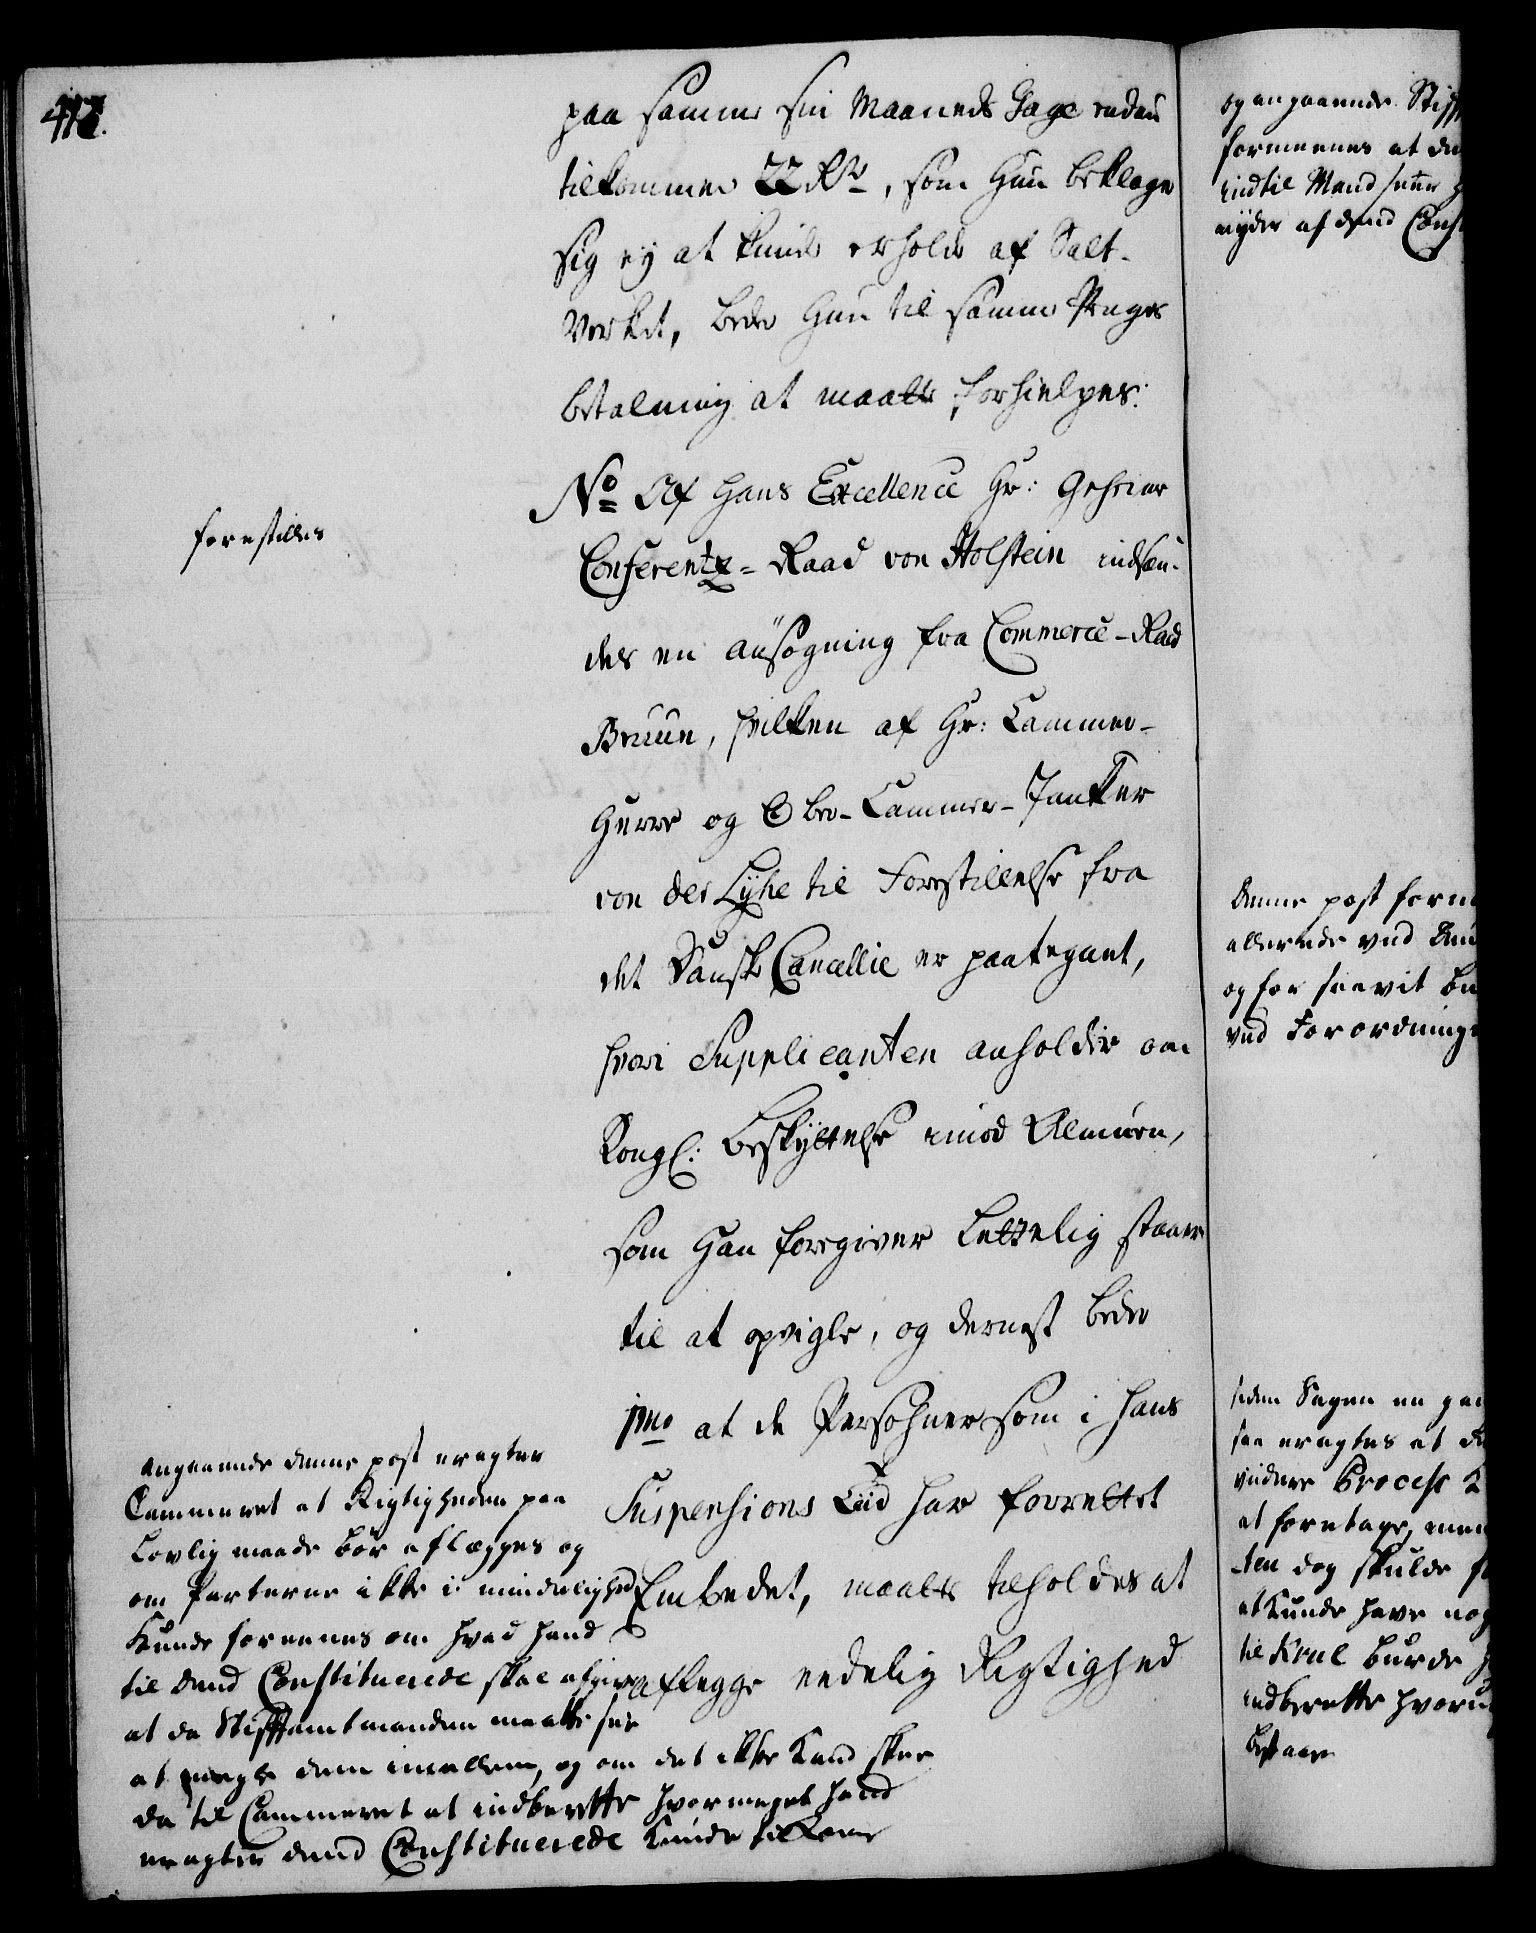 paa samme sin Maaneds Gage endnu
tilkommer 22 Rdr, som hun beklager
sig ey at kunde erholde af Salt-
Verket, beder hun til samme Penges
betalning at maatte forhielpes.
No Af Hans Excellence Hr: Geheime
Conferentz-Raad von Holstein indsen-
des en ansøgning fra Commerce-Raad
Bruun, hvilken af Hr: Cammer-
Herre og Ober-Cammer-Junker
von der Lühe til Forestillelse fra
det Danske Cancellie er paategnet,
hvori Supplicanten anholder om
Kongl: Beskyttelse imod Almuen,
som han foregiver Lettelig staaer
til at opvigle, og dernest beder
1mo at de Persohner som i hans
Suspensions Tiid har forrettet
Embedet, maatte tilholdes at
aflegge endelig Rigtighed
forestilles
angaaende denne post eragter
Cammeret at Rigtigheden paa
Lovlig maade bør aflægges og
om Parterne ikke i mindelighed
kunde forenes om hvad hand
til dend Constituerede skal afgive
at da Stiftamtmanden maatte see
at mægle dem imellem, og om det ikke kand skee
da til Cammeret at indberette hvormeget hand
eragter dend Constituerede kunde tilkomme
og angaaende
formeenes at
indtil Mand
nyder af dend
denne post
allerede ved
og for saavit
ved Forordning
siden Sagen en
saa eragtes at
videre Process
at foretage, men
ten dog skulde
at kunde have
til burde
indberette
bestaaer